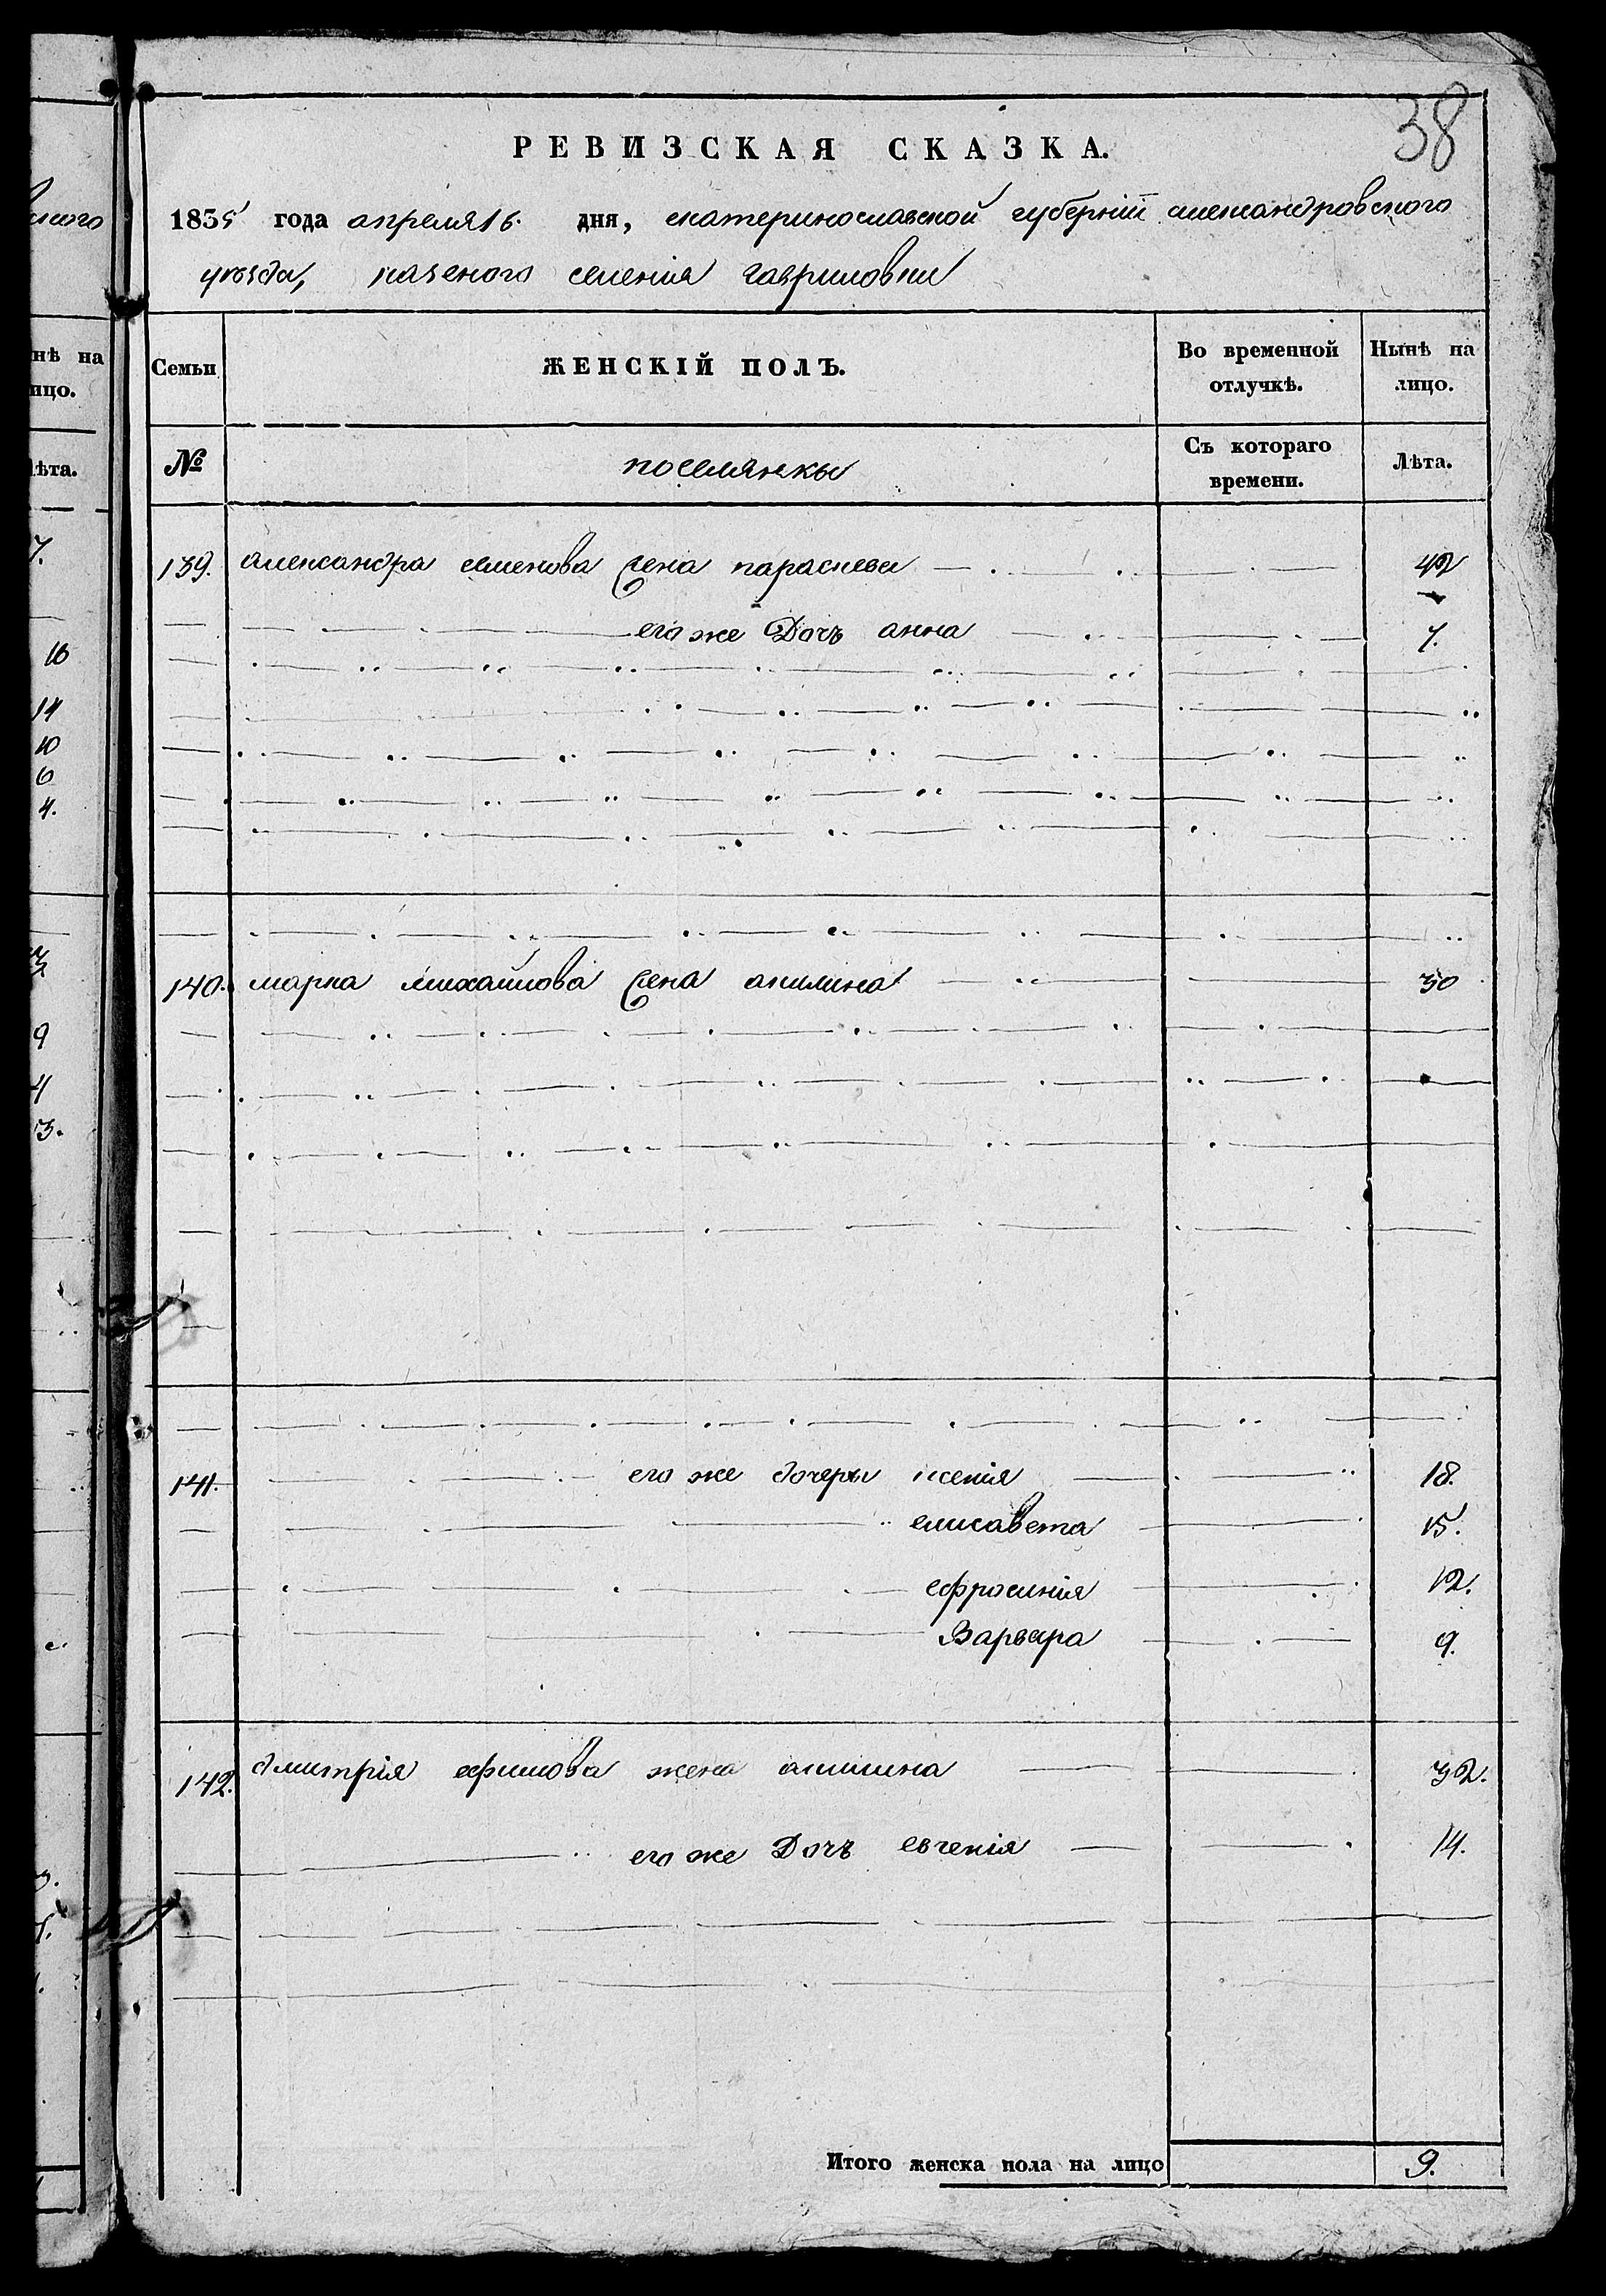 38
РЕВИЗСКАЯ СКАЗКА.
1835 года апреля 16. дня, екатеринославской губерніи александровского
уезда, казеного селенія гавриловки
Семьи
ЖЕНСКІЙ ПОЛЪ.
Во временной отлучкѣ.
Нынѣ на лицо.
№
поселянкы
Съ котораго времени.
Лѣта.
139. александра семенова жена параскева 42
его же Дочъ анна 7.
140. марка михайлова жена акилина 30
141. его же дочеры ксенія 18.
елисавета 15.
ефросинія 12.
Варвара 9.
142. дмитрія ефимова жена акилина 32.
его же Дочъ евгенія 14.
Итого женска пола на лицо 9.
нѣ на
ицо.
ѣта.
7.
16
14
10
6
4.
9
4
3.